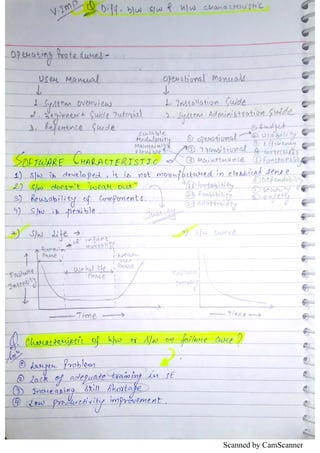 V.Imp Q Diff. b/w S/W & H/W characteristic
Operating Procedures -
User Manual
Operational Manuals
↓ ↓
1. System Overview
1. Installation Guide
2. Beginner's Guide Tutorial
2. System Administration Guide
3. Reference Guide
Maintainable
Flexible
① operational
② Transitional
③ Maintenance
① Budget
② Usability
③ Efficiency
④ correctness
⑤ Functionality
⑥ Dependability
⑦ Security
⑧ Safety
SOFTWARE CHARACTERISTIC →
1) S/w is developed, it is not manufactured in classical sense.
2) S/w doesn't wear out
3) Reusability of components.
4) S/w is flexible
Portability
*) S/w Life →
*) S/w curve
of infant mortality
Wear out Phase
Useful life Phase
Failure Intensity
Failure Intensity
— Time →
— Time →
Q. Characteristic of h/w or S/w or failure curve?
① Larger Problem
② Lack of adequate training in SE
③ Increasing skill shortage
④ Low productivity improvement.
Scanned by CamScanner